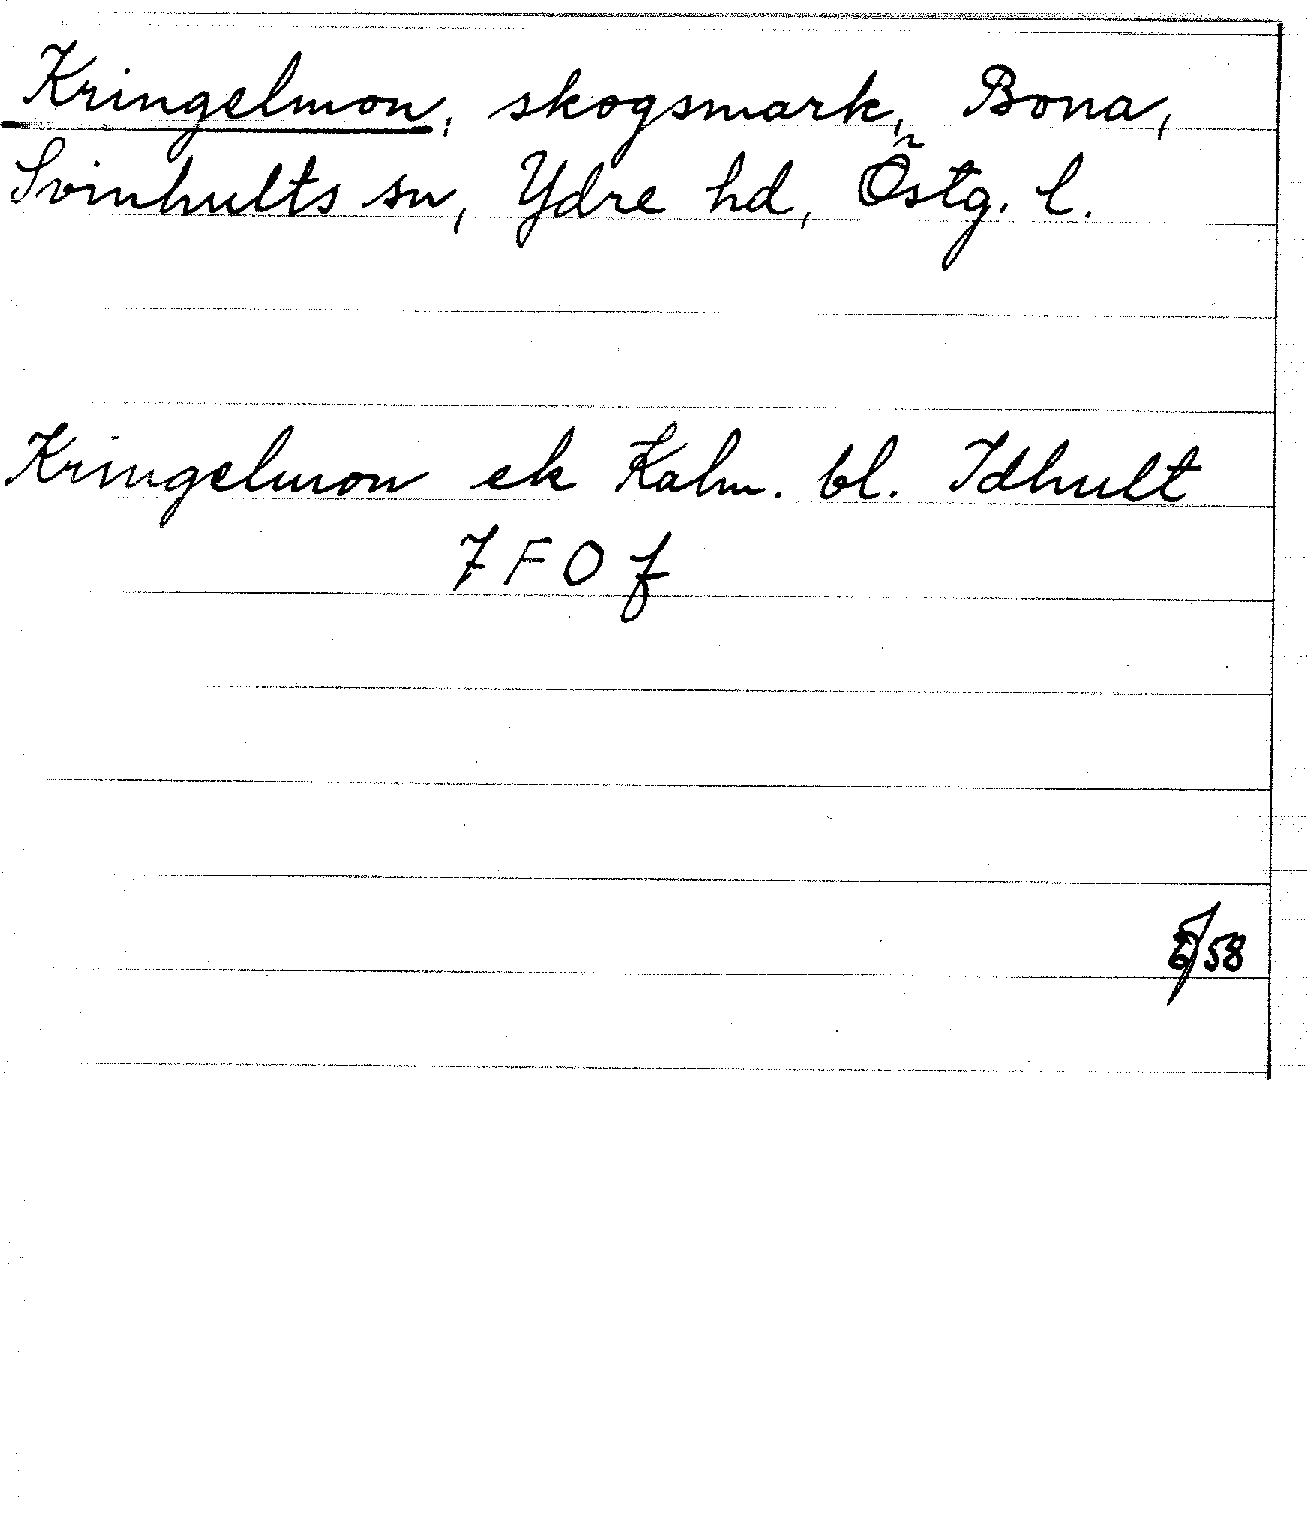 Kringelmon, skogsmark, Bona,
Svinhults sn, Ydre hd, Östg. l.
Kringelmon ek Kalm. bl. Idhult
7 F O f